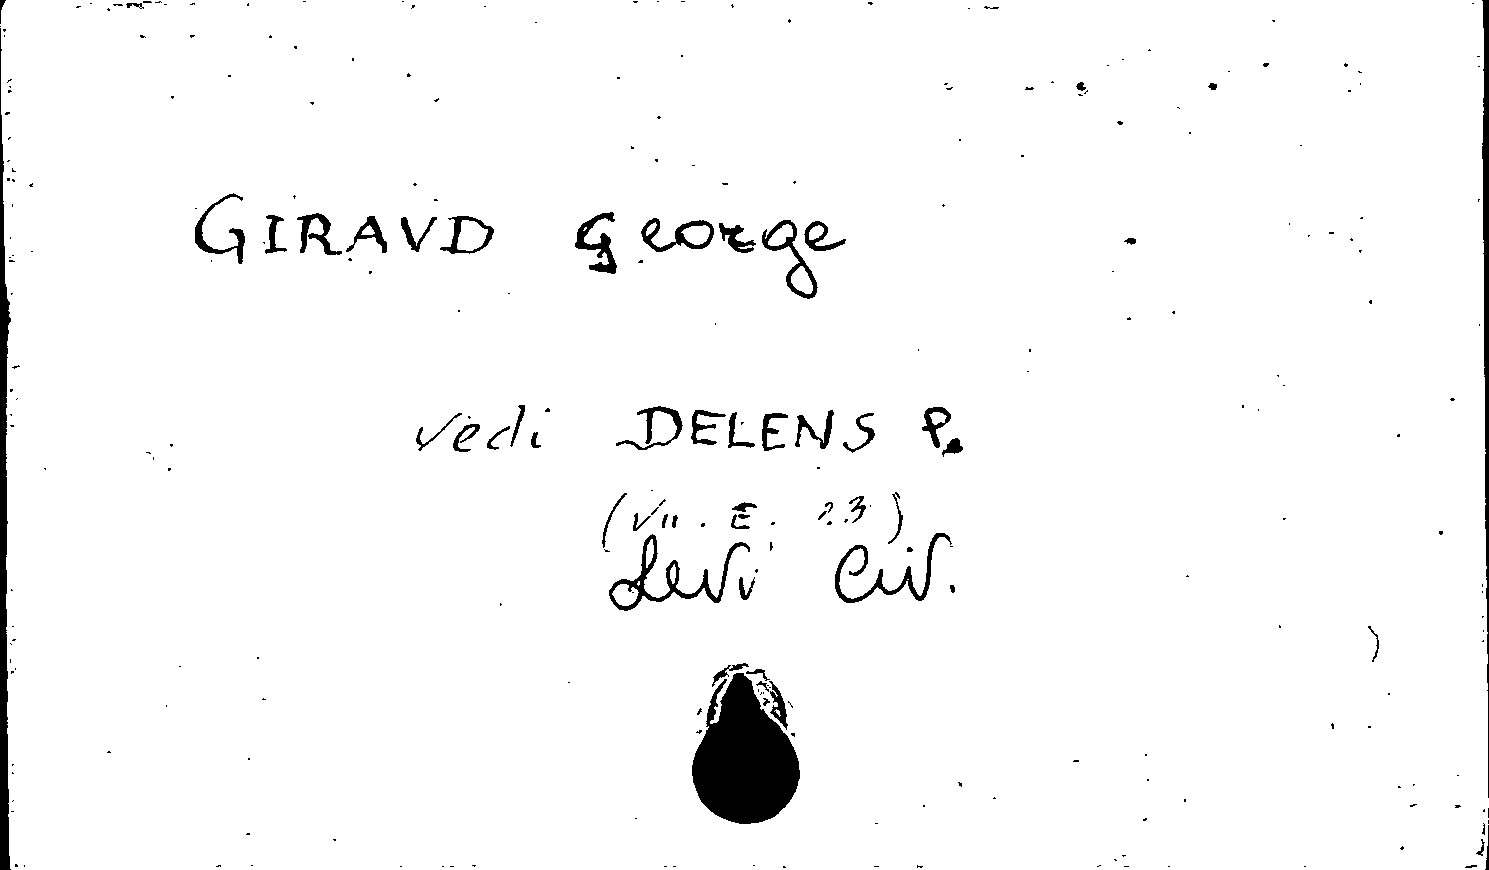 GIRAUD George
vedi DELENS P.
(VII. E. 23)
Levi Civ.